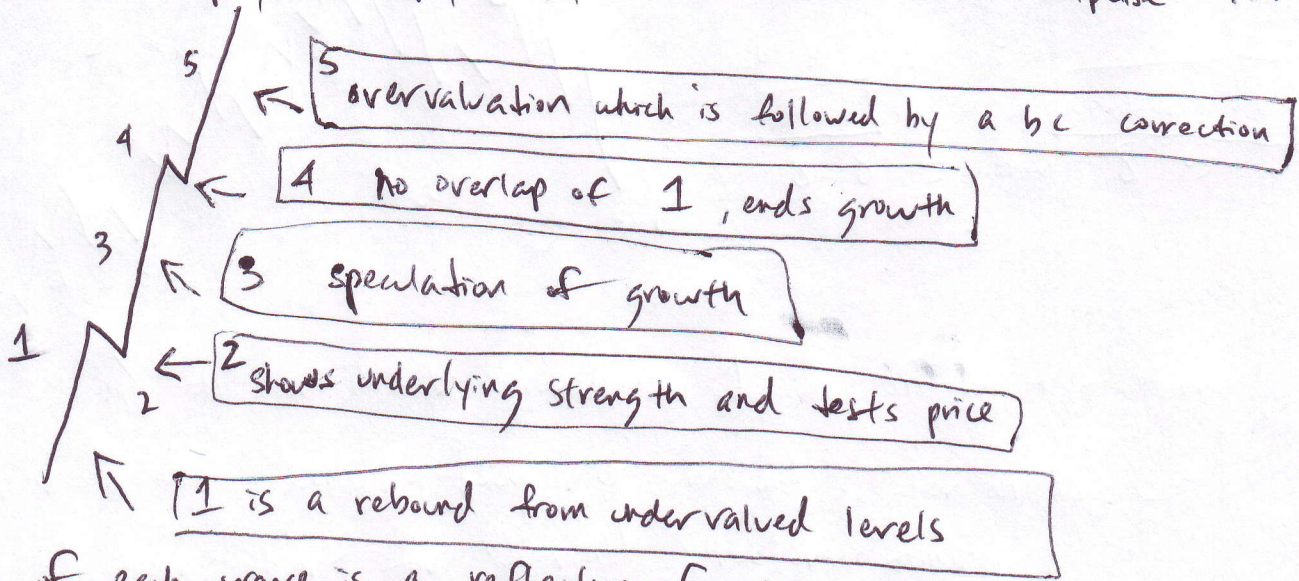 5
5 overvaluation which is followed by a bc correction
4
4 no overlap of 1, ends growth
3
3 speculation of growth
1
2 shows underlying strength and tests price
2
1 is a rebound from undervalued levels
of each is a